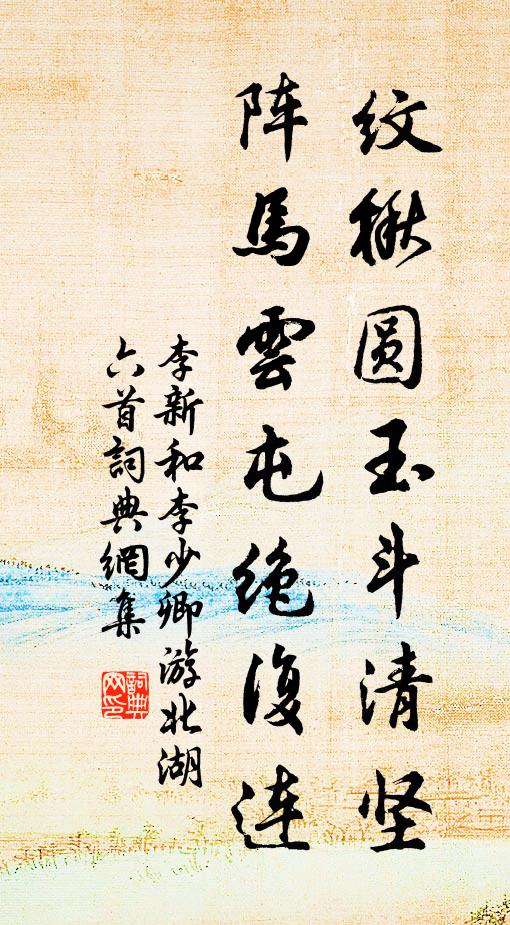 纹楸圆玉斗清坚
阵馬雲屯绝復连
李新和李少卿游北湖
六首詞典網集
詞典網印